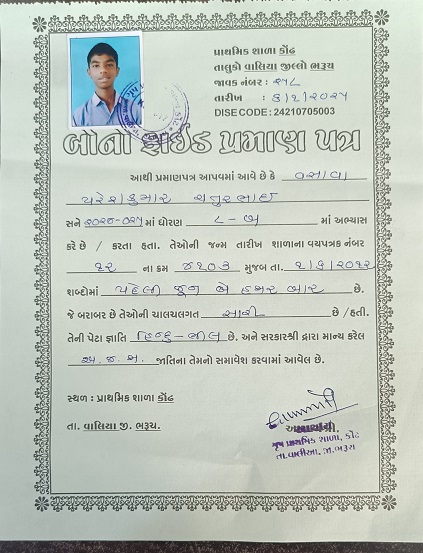 પ્રાથમિક શાળા કોંઢ
તાલુકો વાલિયા જીલ્લો ભરૂચ
જાવક નંબર : ૨૫૮
તારીખ : ૬/૧/૨૦૨૫
DISE CODE : 24210705003
બોનોફાઈડ પ્રમાણ પત્ર
આથી પ્રમાણપત્ર આપવમાં આવે છે કે વસાવા
પરેશકુમાર ચતુરભાઇ
સને ૨૦૨૪-૦૨૫ માં ધોરણ ૮-બ માં અભ્યાસ
કરે છે / કરતા હતા. તેઓની જન્મ તારીખ શાળાના વયપત્રક નંબર
૧૨ ના ક્રમ ૪૧૦૩ મુજબ તા. ૧/૬/૨૦૧૨
શબ્દોમાં પહેલી જૂન બે હજાર બાર છે.
જે બરાબર છે તેઓની ચાલચલગત સારી છે /હતી.
તેની પેટા જ્ઞાતિ હિન્દુ-ભીલ છે. અને સરકારશ્રી દ્રારા માન્ય કરેલ
અ.જ.જા. જાતિના તેમનો સમાવેશ કરવામાં આવેલ છે.
સ્થળ : પ્રાથમિક શાળા કોંઢ
તા. વાલિયા જી. ભરૂચ.
મુખ્ય પ્રાથમિક શાળા, કોંઢ
તા.વાલીઆ, જી.ભરૂચ